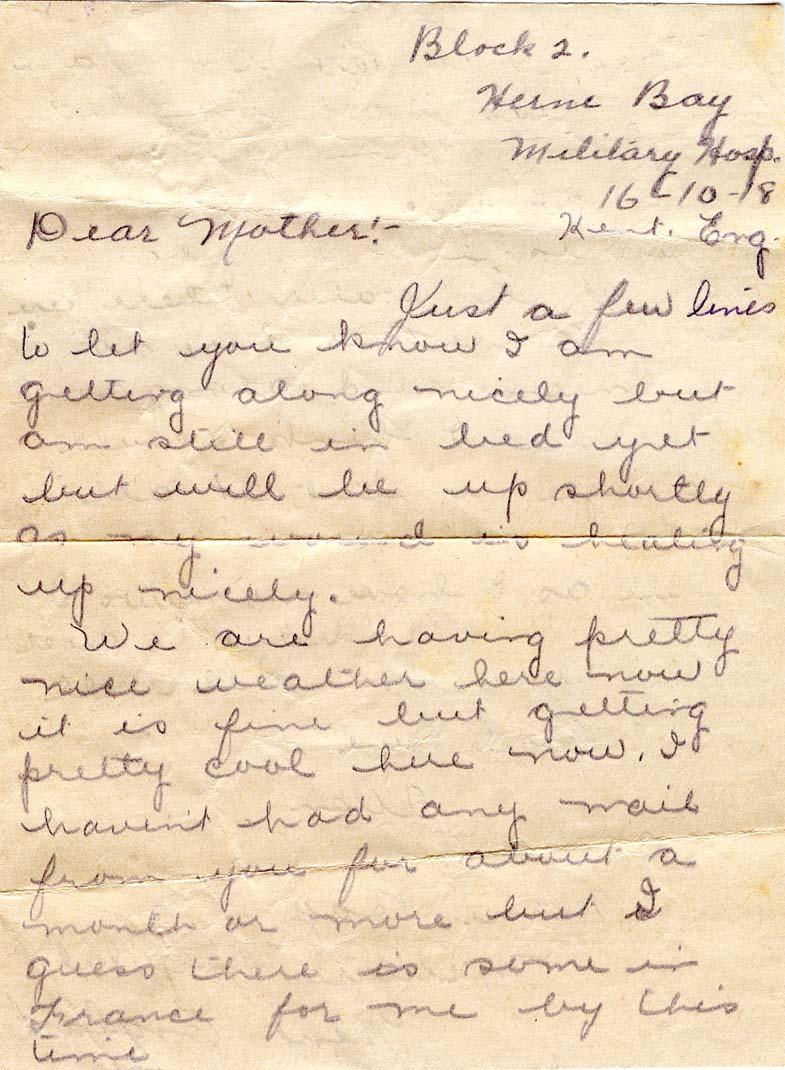 Block 2.
Herne Bay
Military Hosp.
16-10-18
Kent. Eng.
Dear Mother:-
Just a few lines
to let you know I am
getting along nicely but
am still in bed yet
but will be up shortly
as my wound is healing
up nicely.
We are having pretty
nice weather here now
it is fine but getting
pretty cool here now. I
haven't had any mail
from you for about a
month or more but I
guess there is some in
France for me by this
time